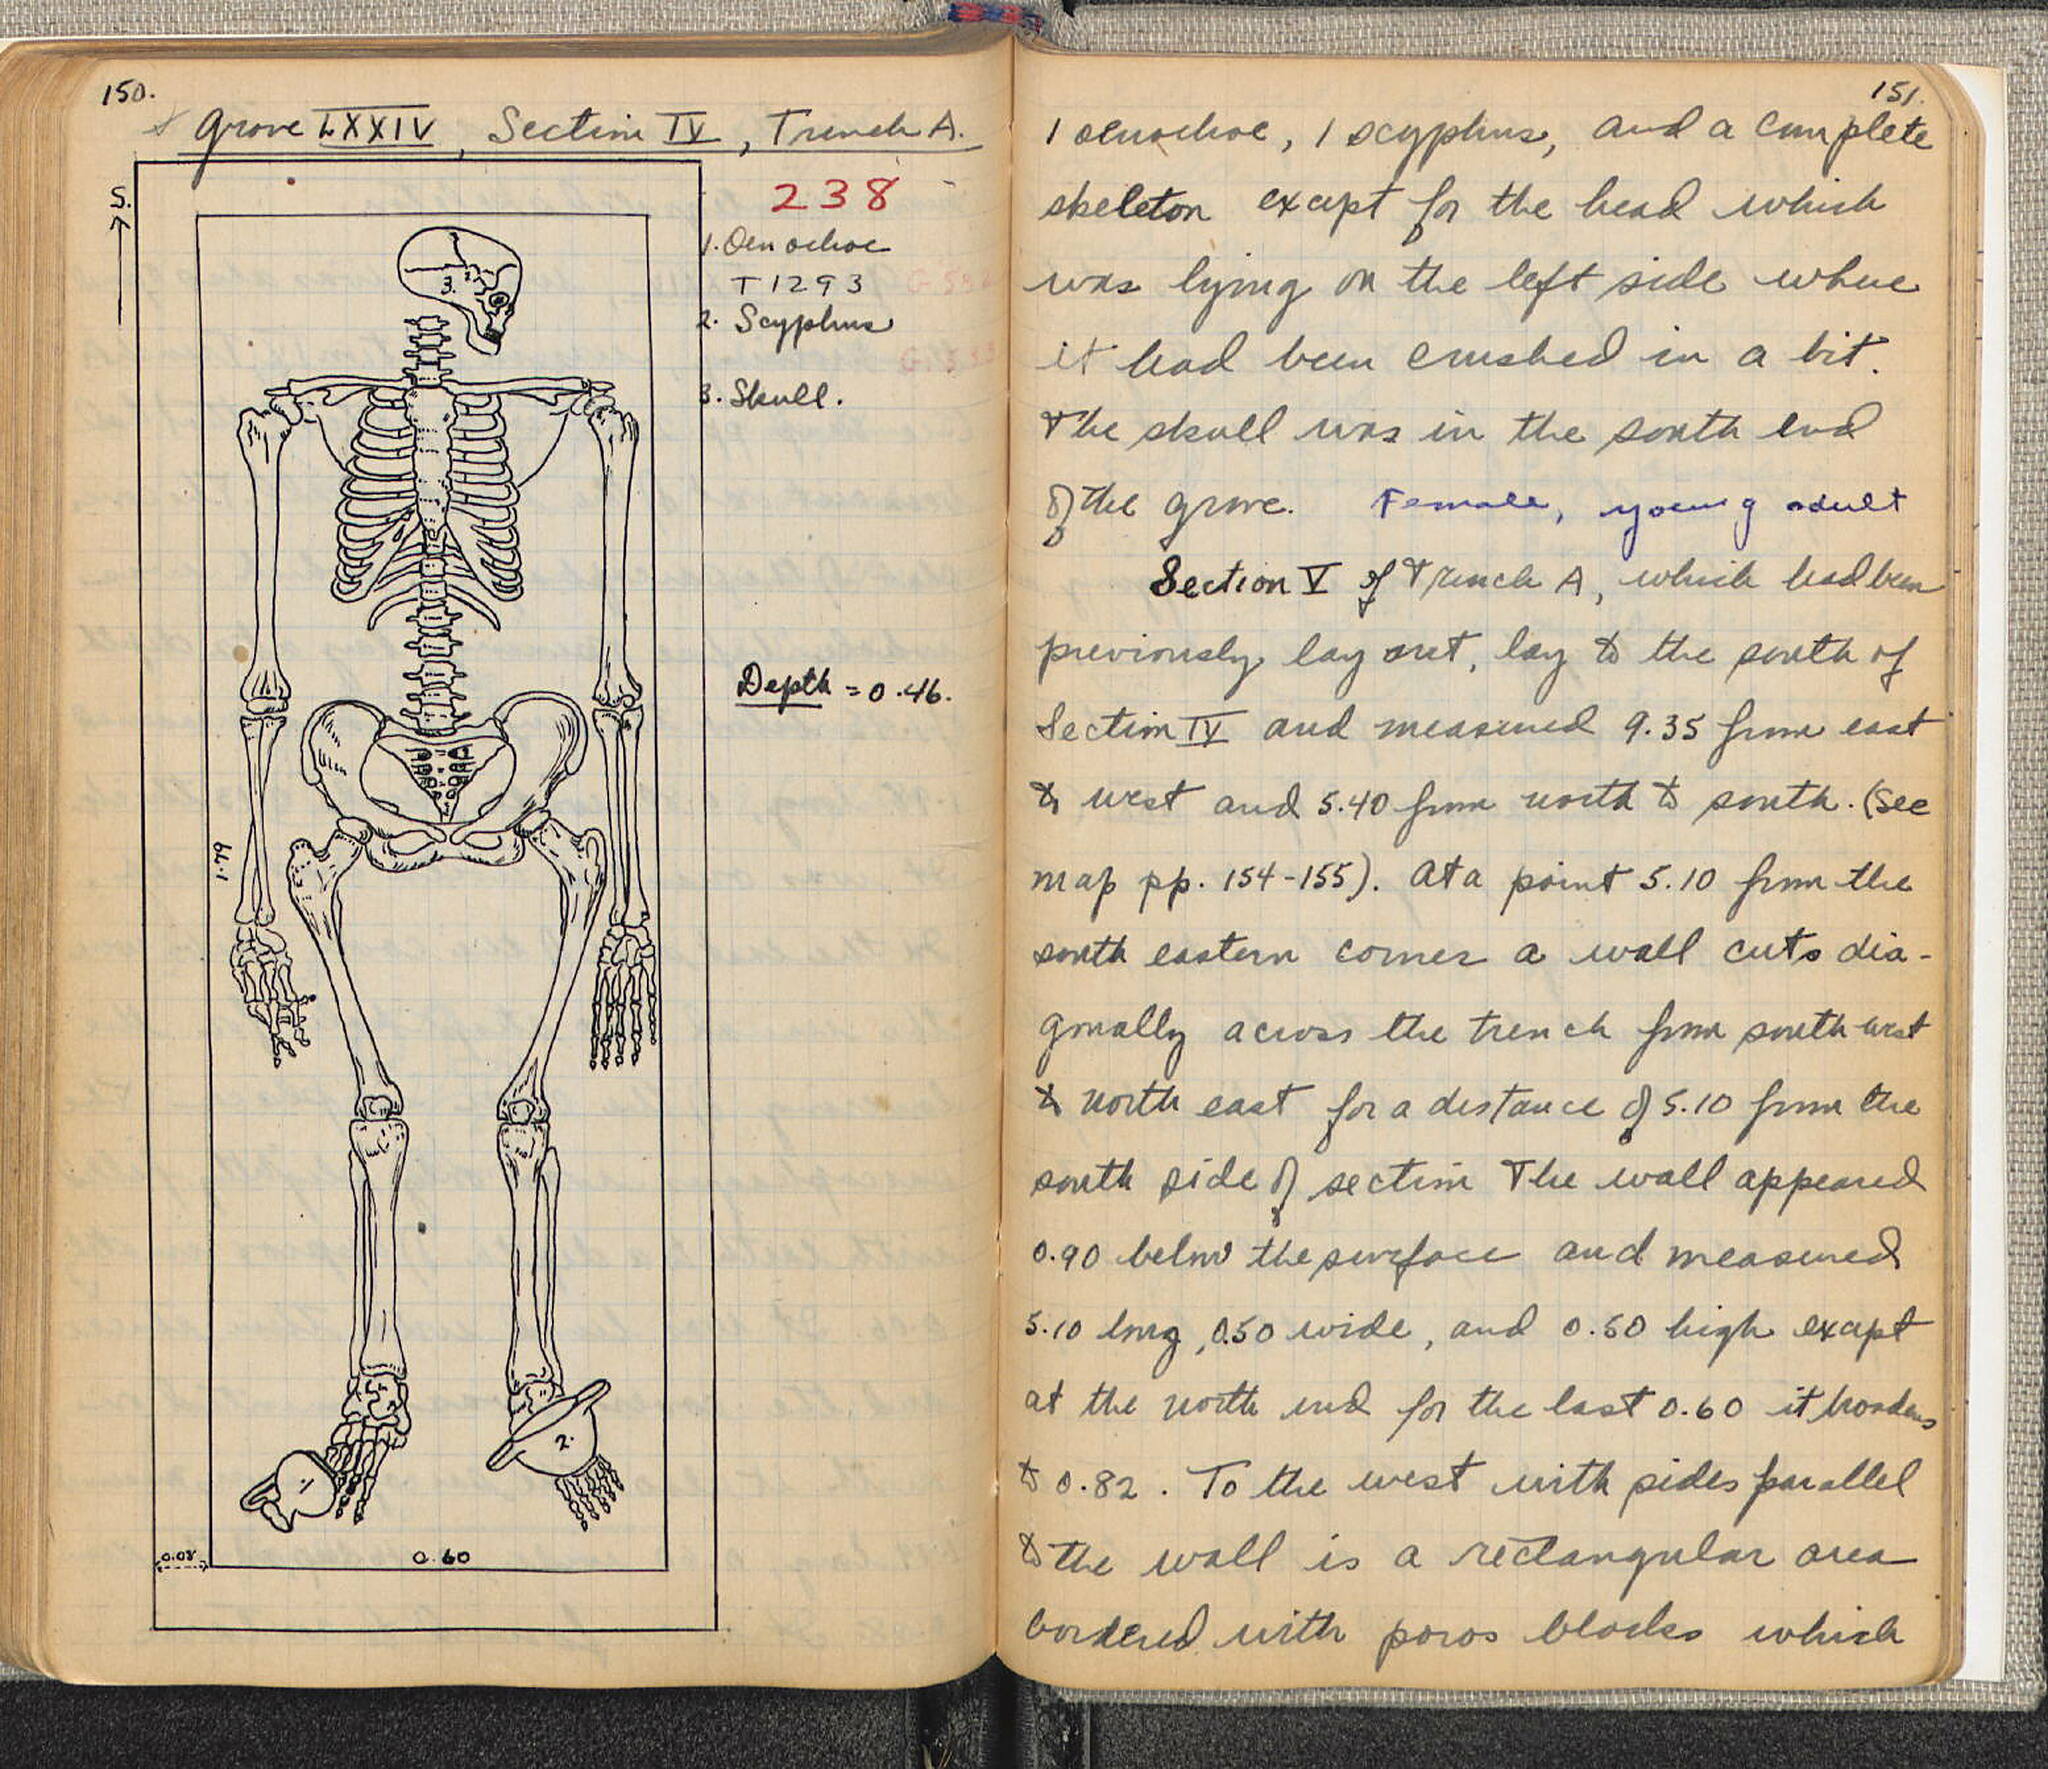 150.
Grave LXXIV, Section IV, Trench A.
S.
238
1. Oenochoe
T 1293
2. Scyphus
3. Skull.
3.
Depth = 0.46.
1.79
1.
2.
0.08
0.60
151.
1 oenochoe, 1 scyphus, and a complete
skeleton except for the head which
was lying on the left side where
it had been crushed in a bit.
The skull was in the south end
of the grave. Female, young adult
Section V of Trench A, which had been
previously lay out, lay to the south of
Section IV and measured 9.35 from east
to west and 5.40 from north to south. (See
map pp. 154-155). At a point 5.10 from the
south eastern corner a wall cuts dia-
gonally across the trench from south west
to north east for a distance of 5.10 from the
south side of section The wall appeared
0.90 below the surface and measured
5.10 long, 0.50 wide, and 0.50 high except
at the north end for the last 0.60 it broadens
to 0.82. To the west with sides parallel
to the wall is a rectangular area
bordered with poros blocks which